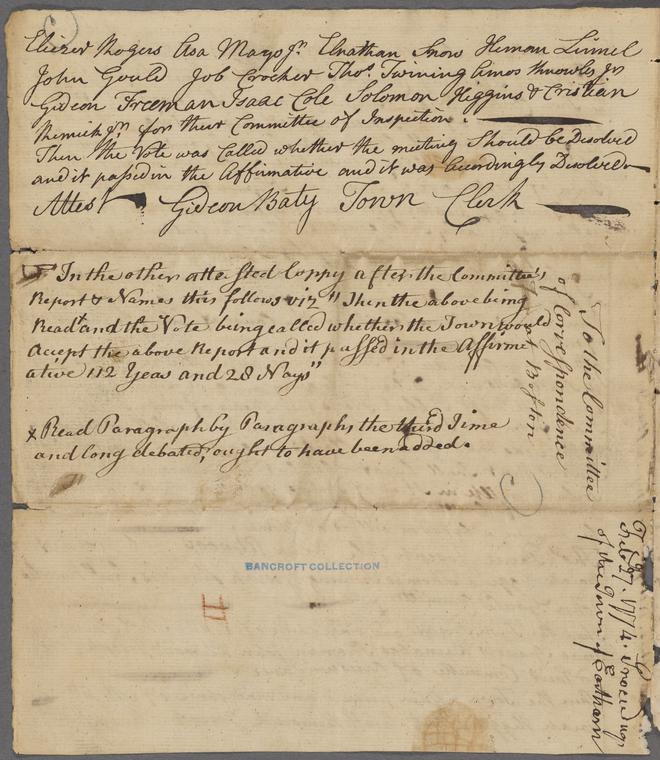 Eliezer Rogers Asa Mayo Jr. Elnathan Snow Heman Linnel
John Gould Job Crocker Thos. Twining Amos Knowles Jr
Gideon Freeman Isaac Cole Solomon Higgins & Cristian
Remick Jr. for their Committee of Inspection.
Then the Vote was Called whether the meeting Should be Disolved
and it passed in the Affirmative and it was Accordingly Disolved
Attest Gideon Baty Town Clerk
In the other attested Coppy after the Committee's
Report & Names this follows viz" Then the above being
Read and the Vote being called whether the Town would
Accept the above Report and it passed in the Affirm
ative 112 Yeas and 28 Nays"
x Read Paragraph by Paragraphs the third Time
and long debated, ought to have been added.
To the Committee
of Correspondence
Boston
Feb 27. 1774. Proceedings
of the Town of Eastham
BANCROFT COLLECTION